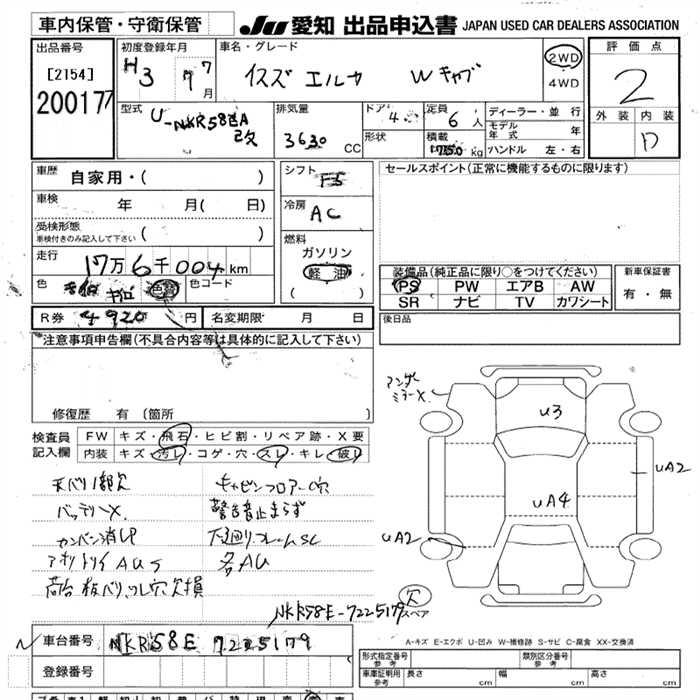 車内保管・守衛保管
JU 愛知 出品申込書 JAPAN USED CAR DEALERS ASSOCIATION
出品番号
[2154]
200177
初度登録年月
H3 7 7月
車名・グレード
イスズ エルカ Wキャブ
2WD
4WD
評価点
2
外装 内装
D
型式
U-NKR58EA
改
排気量
3630 CC
ドア 4
形状
定員
6人
積載
1750 kg
ディーラー・並行
モデル年式 年
ハンドル 左・右
車歴
自家用・( )
車検
年 月( 日)
受検形態
車検付きのみ記入して下さい ( )
走行
17万6千004km
色
色替
色コード
シフト
F5
冷房
AC
燃料
ガソリン
軽油
( )
セールスポイント(正常に機能するものに限ります)
装備品(純正品に限り○をつけてください)
PS PW エアB AW
SR ナビ TV カワシート
新車保証書
有・無
R券 4920円
名変期限 月 日
後日品
注意事項申告欄(不具合内容等は具体的に記入して下さい)
修復歴 有 [箇所
検査員記入欄
FW キズ・飛石・ヒビ割・リペア跡・X要
内装 キズ・汚レ・コゲ・穴・スレ・キレ・破レ
天バリ1部欠 キャビンフロアー穴
バッテリーX 警告音止まらず
カンバン消し 下廻りフレームSC
アオリトリイAUS 各AU
荷台板バリ、ワレ穴欠損
アンダーミラーX
U3
UA2
UA4
UA2
欠
スペア
NKR58E-7225179
A-キズ E-エクボ U-凹み W-補修跡 S-サビ C-腐食 XX-交換済
車台番号
NKR58E 7225179
登録番号
形式指定番号
参考
類別区分番号
参考
車庫証明用
参考
長さ cm
幅 cm
高さ cm